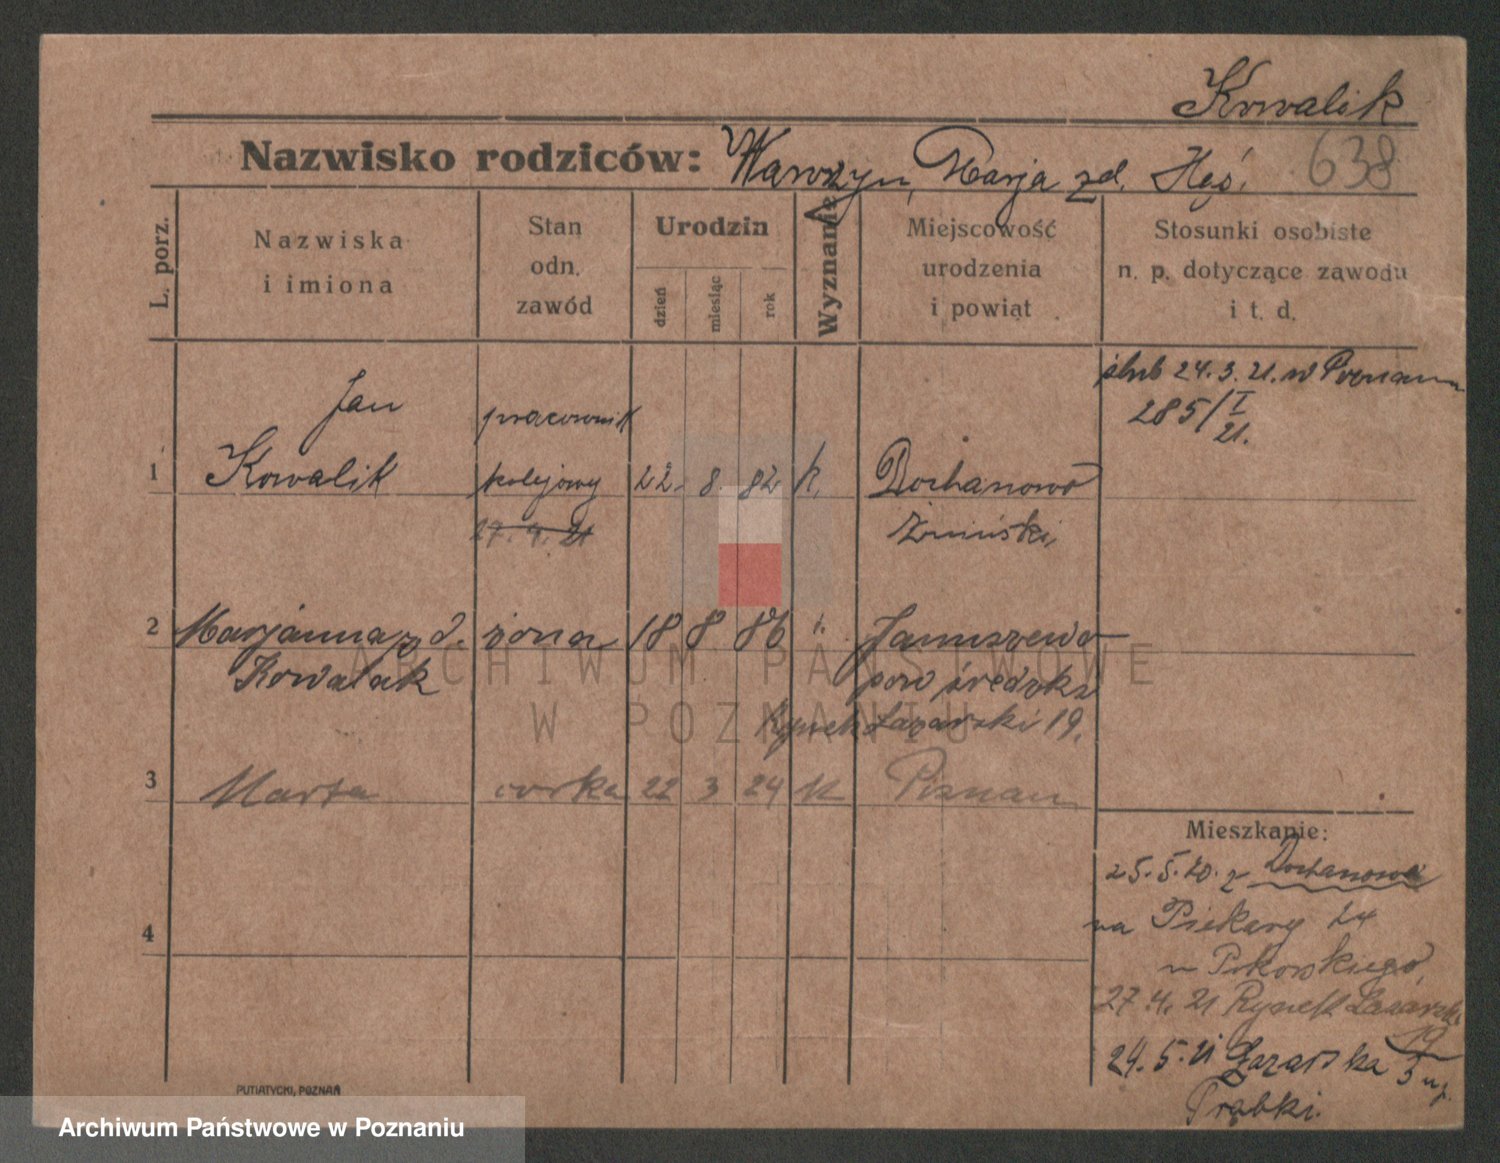 Kowalik
Nazwisko rodziców: Wawrzyn, Marja zd. Heś. 638
L. porz.
Nazwiska
i imiona
Stan
odn.
zawód
Urodzin
dzień
miesiąc
rok
Wyznanie
Miejscowość
urodzenia
i powiąt
Stosunki osobiste
n. p. dotyczące zawodu
i t. d.
ślub 24.3.21. w Poznaniu
285/I
21.
Jan pracownik
1 Kowalik kolejowy 22. 8 82 k. Dochanowo
27. 4. 21 Żniński,
2 Marjanna zd. żona 18 8 86 Januszewo
Kowalak pow średzki
Rynek Łazarski 19.
3 Marta córka 22 3 24 k Poznań
4
Mieszkanie:
25.5.20. z Dochanowa
na Piekary 24
u Pokorskiego,
27.4.21 Rynek Łazarski
19
24.5.21 Łazarska 5
Trąbki.
PUTIATYCKI, POZNAŃ
ARCHIWUM PAŃSTWOWE
W POZNANIU
Archiwum Państwowe w Poznaniu